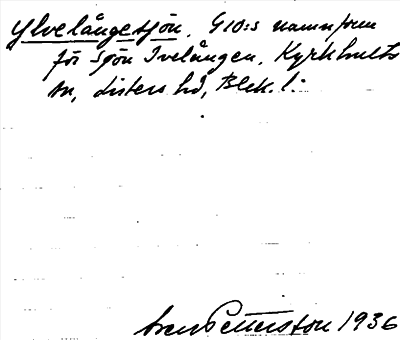 Ylvelångesjön. G10:s namnform
för sjön Ivelången, Kyrkhults
sn, Listers hd, Blek. l.
Sven Petterston 1936